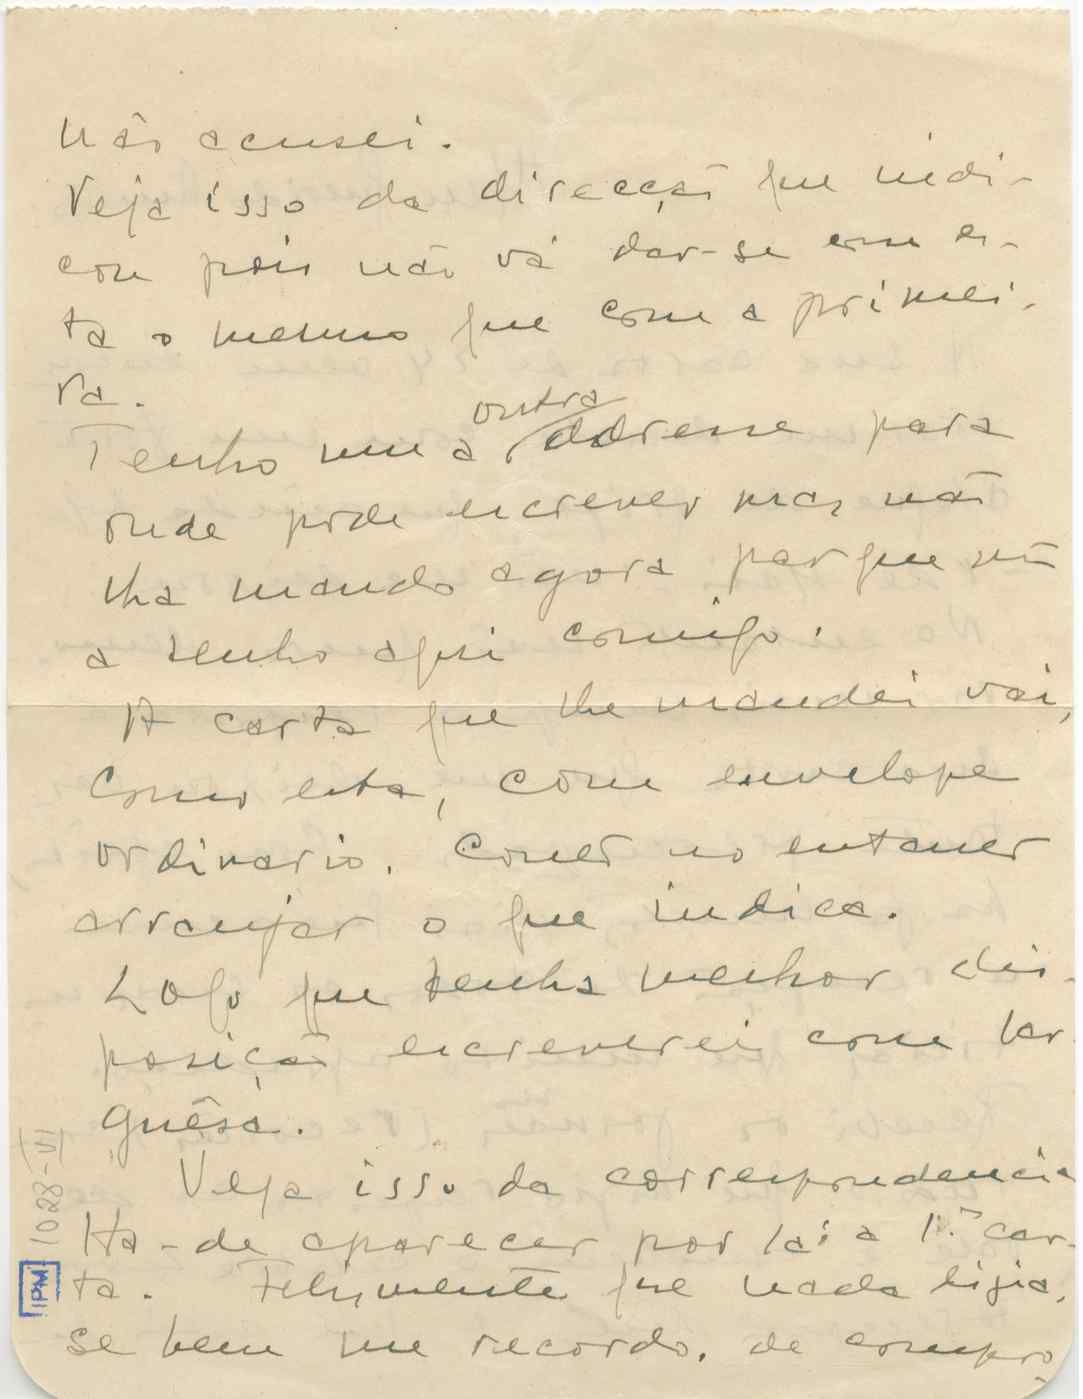 não acusei.
Veja isso da direcção que indi-
cou pois não vá dar-se com es-
ta o mesmo que com a primei-
ra.
Tenho uma outra adresse para
onde pode escrever mas não
lha mando agora porque não
a tenho aqui comigo.
A carta que lhe mandei vai,
como esta, com envelope
ordinario. Conto no entanto
arranjar o que indica.
Logo que tenha melhor dis-
posição escreverei com lar-
guêsa.
Veja isso da correspondencia
Ha-de aparecer por lá a 1.ª car-
ta. Felizmente que nada dizia,
se bem me recordo, de compro-
1028-VI
IPM